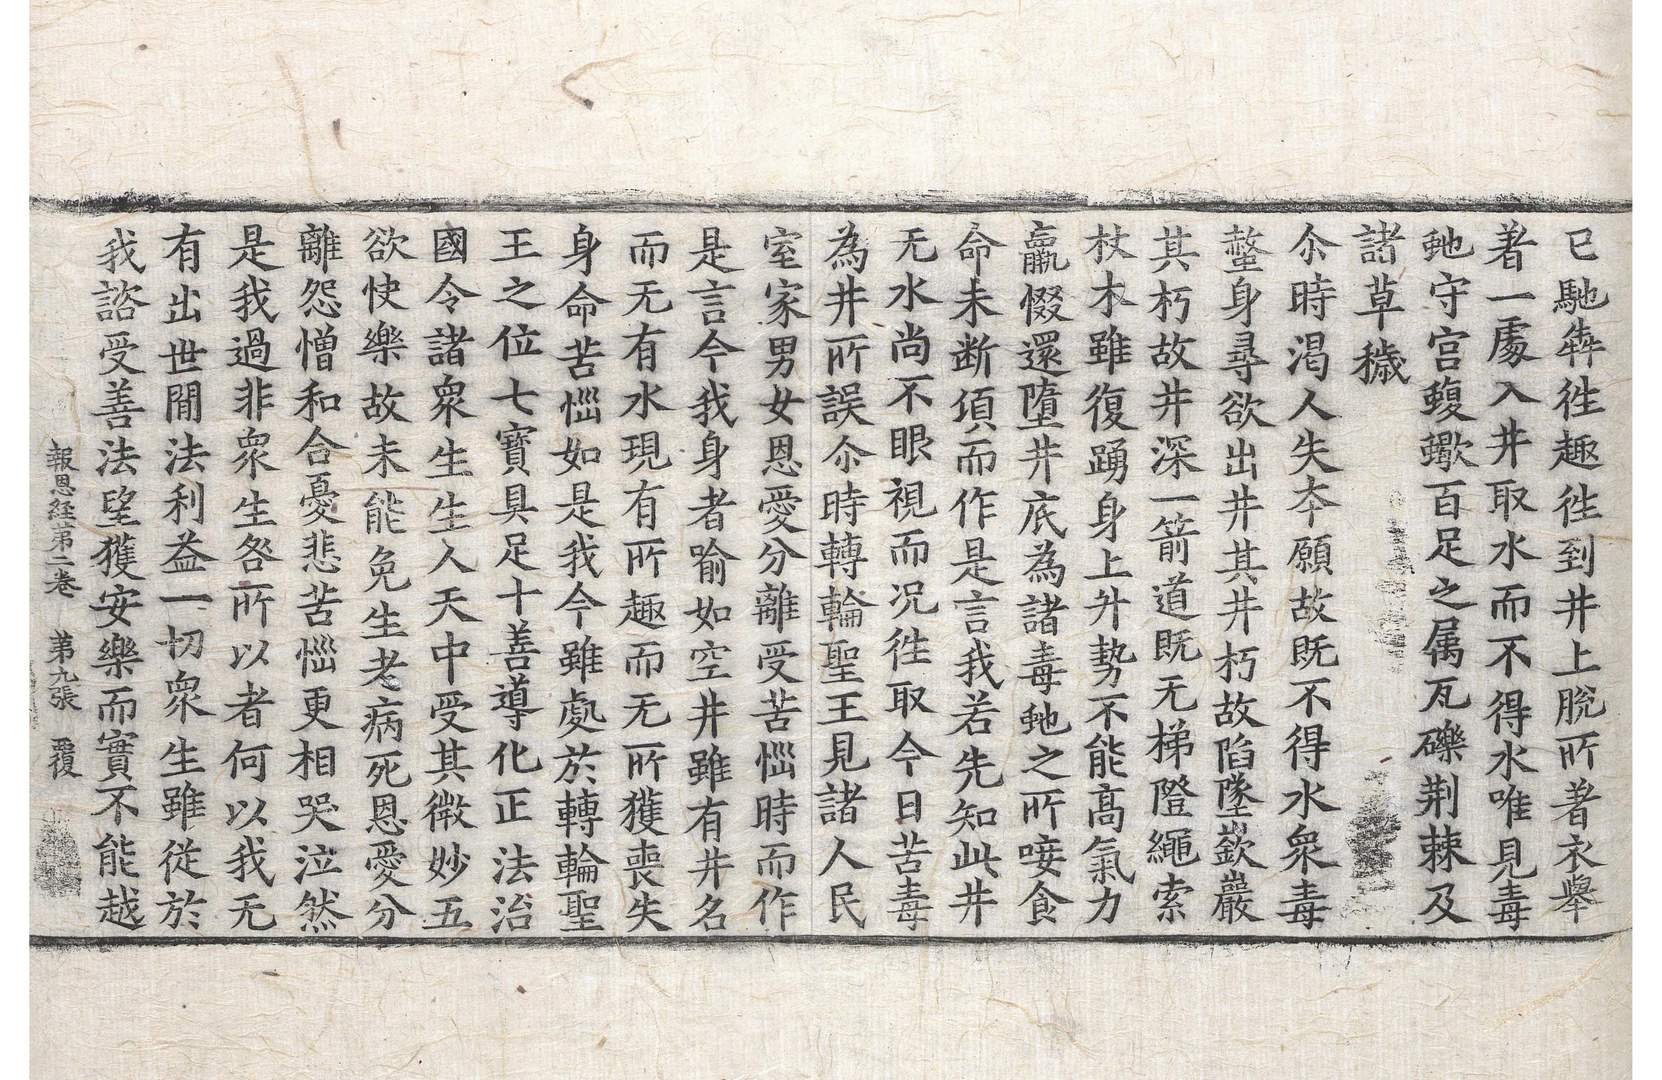 已馳犇徃趣徃到井上脫所著衣舉
著一處入井取水而不得水唯見毒
虵守宫蝮蠍百足之属瓦礫荆棘及
諸草穢
尒時渇人失夲願故既不得水衆毒
螫身尋欲出井其井朽故陷墜嶔巖
其朽故井深一箭道既无梯隥繩索
杖木雖復踊身上升勢不能高氣力
羸惙還墮井底為諸毒虵之所唼食
命未断湏而作是言我若先知此井
无水尚不眼視而况徃取今日苦毒
為井所誤尒時轉輪聖王見諸人民
室家男女恩愛分離受苦惱時而作
是言今我身者喻如空井雖有井名
而无有水現有所趣而无所獲喪失
身命苦惱如是我今雖處於轉輪聖
王之位七寳具足十善導化正法治
國令諸衆生生人天中受其微妙五
欲快樂故未能免生老病死恩愛分
離怨憎和合憂悲苦惱更相哭泣然
是我過非衆生咎所以者何以我无
有出世間法利益一切衆生雖従於
我諮受善法望獲安樂而實不能越
報恩経第二卷 第九張 覆